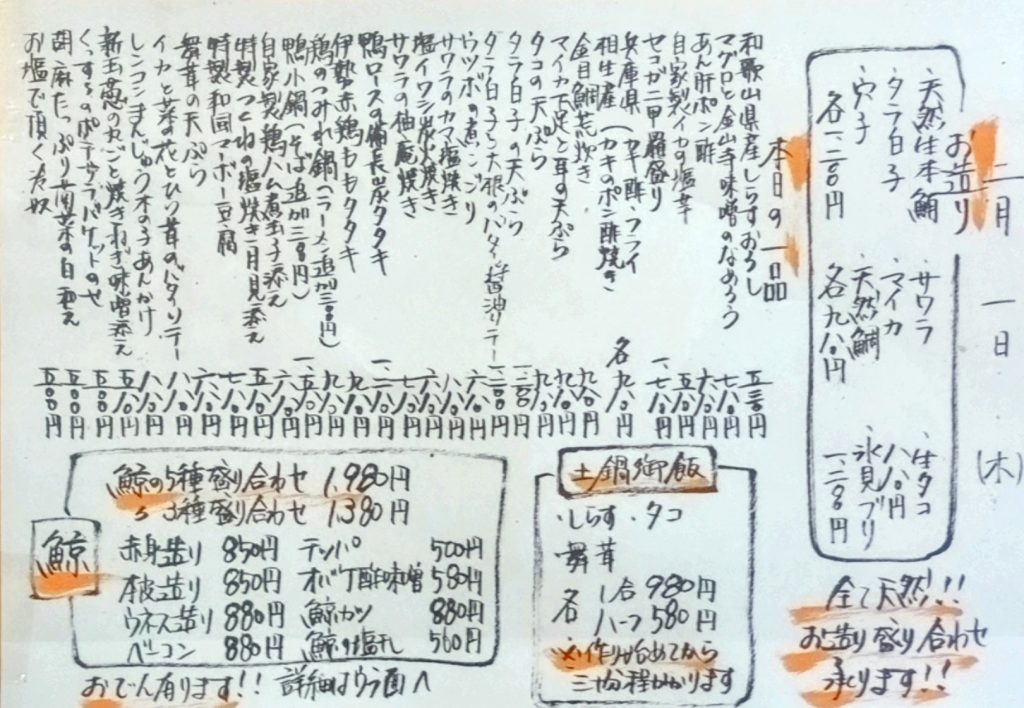 二月一日(木)
お造り
・天然生本鮪
・タラ白子
・穴子
各一二〇〇円
・サワラ
・マイカ
・天然鯛
各九八〇円
・生タコ
八八〇円
・氷見ブリ
一、二〇〇円
全て天然!!
お造り盛り合わせ
承ります!!
本日の一品
和歌山県産しらすおろし 五三〇円
マグロと金山寺味噌のなめろう 七八〇円
あん肝ポン酢 六八〇円
自家製イカの塩辛 五八〇円
セコガニ甲羅盛り 一、七八〇円
兵庫県(カキ酢・フライ
相生産(カキのポン酢焼き 各九八〇円
金目鯛荒炊き 九八〇円
マイカ下足と耳の天ぷら 九八〇円
タコの天ぷら 九八〇円
タラ白子の天ぷら 一、二〇〇円
タラ白子と大根のバタイ醤油ソテー 一、二〇〇円
ウツボの煮こごり 八八〇円
塩イワシ炭火焼き
サワラのカマ塩焼き
サワラの柚庵焼き
鴨ロースの備長炭タタキ
伊勢赤鶏ももタタキ
鶏のつみれ鍋(ラーメン追加三〇〇円)
鴨小鍋(そば追加三〇〇円)
自家製鶏ハム煮玉子添え
特製つくねの塩焼き月見添え
特製和風マーボー豆腐
舞茸の天ぷら
イカと菜の花とひら茸のバタイソテー
レンコンまんじゅう木の子あんかけ
新玉葱の丸ごと焼きねぎ味噌添え 五八〇円
くっするのポテサラバゲットのせ 五〇〇円
胡麻たっぷり旬菜の白和え 五〇〇円
お塩で頂くお奴 五〇〇円
鯨
鯨の5種盛り合わせ 1,980円
〃 3種盛り合わせ 1,380円
赤身造り 850円
本皮造り 850円
ウネス造り 880円
ベーコン 880円
テッパ 500円
オバ丁酢味噌 580円
鯨カツ 880円
鯨の塩 560円
おでん有ります!! 詳細はウラ面へ
土鍋御飯
・しらす・タコ
舞茸
各 1合 980円
ハーフ 580円
※作り始めてから
三十分程かかります